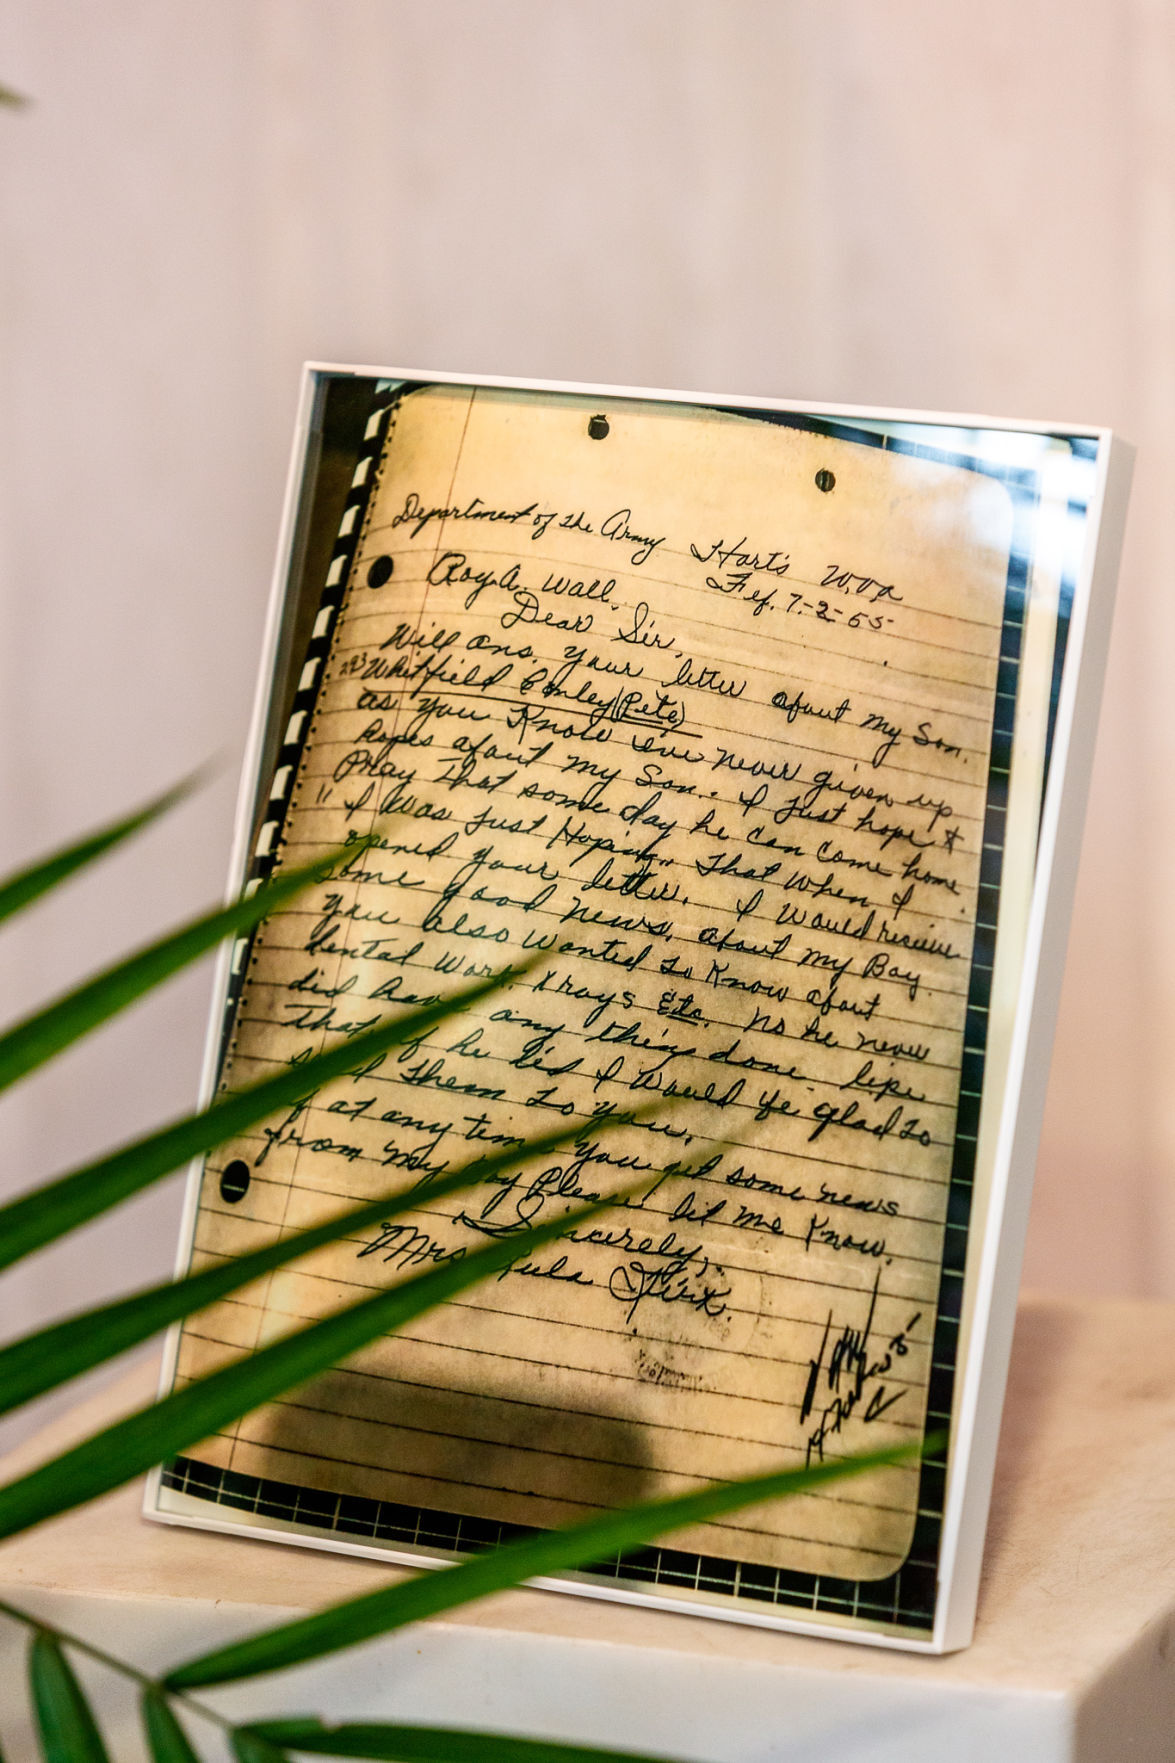 Department of the Army Harts W.Va
Roy A. Wall. Feb. 7-2-55
Dear Sir,
Will ans. your letter about my Son.
293 Whitfield Conley (Pete)
as you Know I've never given up
hopes about my Son. I just hope &
Pray that some day he can come home
" I was just Hoping" That when I
opened your letter, I would receive
some good news, about my Boy.
you also wanted to Know about
dental work. Xrays Etc. No he never
did have any thing done like
that if he did I would be glad to
send them to you.
If at any time you get some news
from my boy Please let me Know.
Sincerely,
Mrs Lula Kirk.